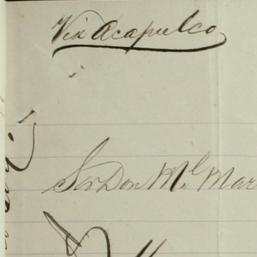 Via Acapulco
Sor Don Ml Mar